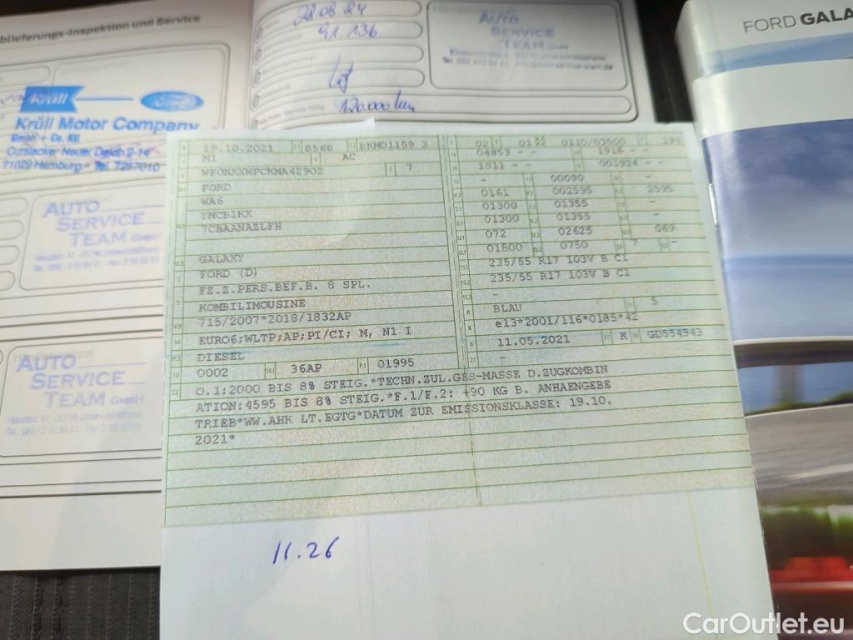 blieferungs-Inspektion und Service
28.08.24
91.136
120.000 km
AUTO
SERVICE
TEAM GmbH
FORD GALA
Krüll
Ford
Krüll Motor Company
GmbH + Co. KG
Hamburg
AUTO
SERVICE
TEAM GmbH
AUTO
SERVICE
TEAM GmbH
19.10.2021 8566
M1 AC
7
FORD
WA6
GALAXY
FORD (D)
FZ.Z.PERS.BEF.B. 8 SPL.
KOMBILIMOUSINE
715/2007*2018/1832AP
EURO6;WLTP;AP;PI/CI; M, N1 I
DIESEL
0002 36AP 01995
04853 - -
1811 - - 001924 - -
- 00090 -
0161 002595 2595
01300 01355 -
01300 01355 -
072 02625 069
01800 0750 7 -
235/55 R17 103V B C1
235/55 R17 103V B C1
-
BLAU 5
e13*2001/116*0185*42
11.05.2021 K GD554943
-
O.1:2000 BIS 8% STEIG.*TECHN.ZUL.GES-MASSE D.ZUGKOMBIN
ATION:4595 BIS 8% STEIG.*F.1/F.2: +90 KG B. ANHAENGEBE
TRIEB*WW.AHK LT.EGTG*DATUM ZUR EMISSIONSKLASSE: 19.10.
2021*
11.26
CarOutlet.eu